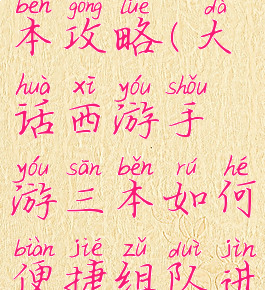 běn gōng lüè dà
本攻略(大
huà xī yóu shǒu
话西游手
yóu sān běn rú hé
游三本如何
biàn jié zǔ duì jìn
便捷组队进